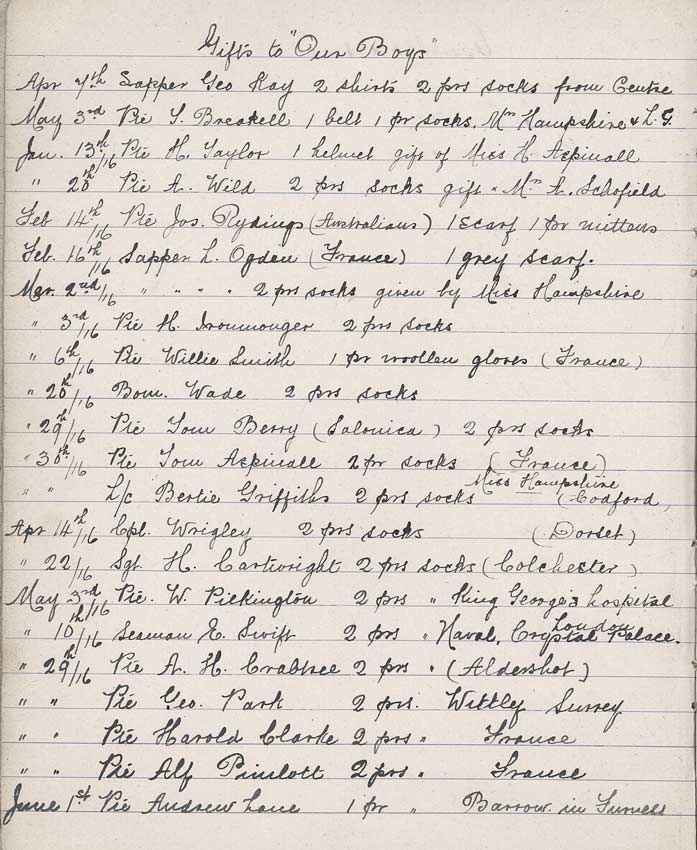 Gifts to "Our Boys"
Apr 7th Sapper Geo Kay 2 shirts 2 prs socks from Centre
May 3rd Pte T. Breakell 1 belt 1 pr socks. Mrs Hampshire & L.G.
Jan. 13th/16 Pte H. Taylor 1 helmet gift of Miss H. Aspinall
" 28th Pte A. Wild 2 prs socks gift " Mrs A. Schofield
Feb 14th/16 Pte Jos. Rydings (Australians) 1 Scarf 1 pr mittens
Feb. 16th/16 Sapper L. Ogden (France) 1 grey scarf.
Mar. 2nd/16 " " " " 2 prs socks given by Miss Hampshire
" 3rd/16 Pte H. Ironmonger 2 prs socks
" 6th/16 Pte Willie Smith 1 pr woollen gloves (France)
" 20th/16 Bom. Wade 2 prs socks
" 29th/16 Pte Tom Berry (Salonica) 2 prs socks
" 30th/16 Pte Tom Aspinall 2 pr socks (France)
Miss Hampshire
" " L/c Bertie Griffiths 2 prs socks (Codford,
Apr 14th/16 Cpl. Wrigley 2 prs socks (Dorset)
" 22/16 Sgt. H. Cartwright 2 prs socks (Colchester)
May 3rd/16 Pte. W. Pilkington 2 prs " King George's hospital
London
" 10th/16 Seaman E. Swift 2 prs " Naval, Crystal Palace.
" 29th/16 Pte A. H. Crabtree 2 prs " (Aldershot)
" " Pte Geo. Park 2 prs. Wittly Surrey
" " Pte Harold Clarke 2 prs " France
" " Pte Alf Pimlott 2 prs " France
June 1st Pte Andrew Lane 1 pr " Barrow. in Furness